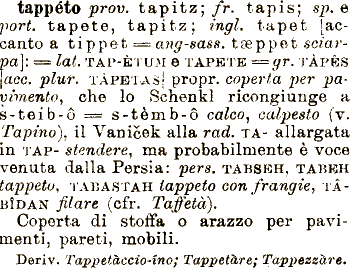 tappéto prov. tapitz; fr. tapis; sp. e
port. tapete, tapitz; ingl. tapet [ac-
canto a tippet = ang-sass. tæppet sciar-
pa]: = lat. TAP-ÈTUM e TAPETE = gr. TÀPÈS
[acc. plur. TÀPETAS] propr. coperta per pa-
vimento, che lo Schenkl ricongiunge a
s-teib-ô = s-tèmb-ô calco, calpesto (v.
Tapino), il Vaniček alla rad. TA- allargata
in TAP- stendere, ma probabilmente è voce
venuta dalla Persia: pers. TABSEH, TABEH
tappeto, TABASTAH tappeto con frangie, TÂ-
BÎDAN filare (cfr. Taffetà).
Coperta di stoffa o arazzo per pavi-
menti, pareti, mobili.
Deriv. Tappetàccio-íno; Tappetàre; Tappezzàre.